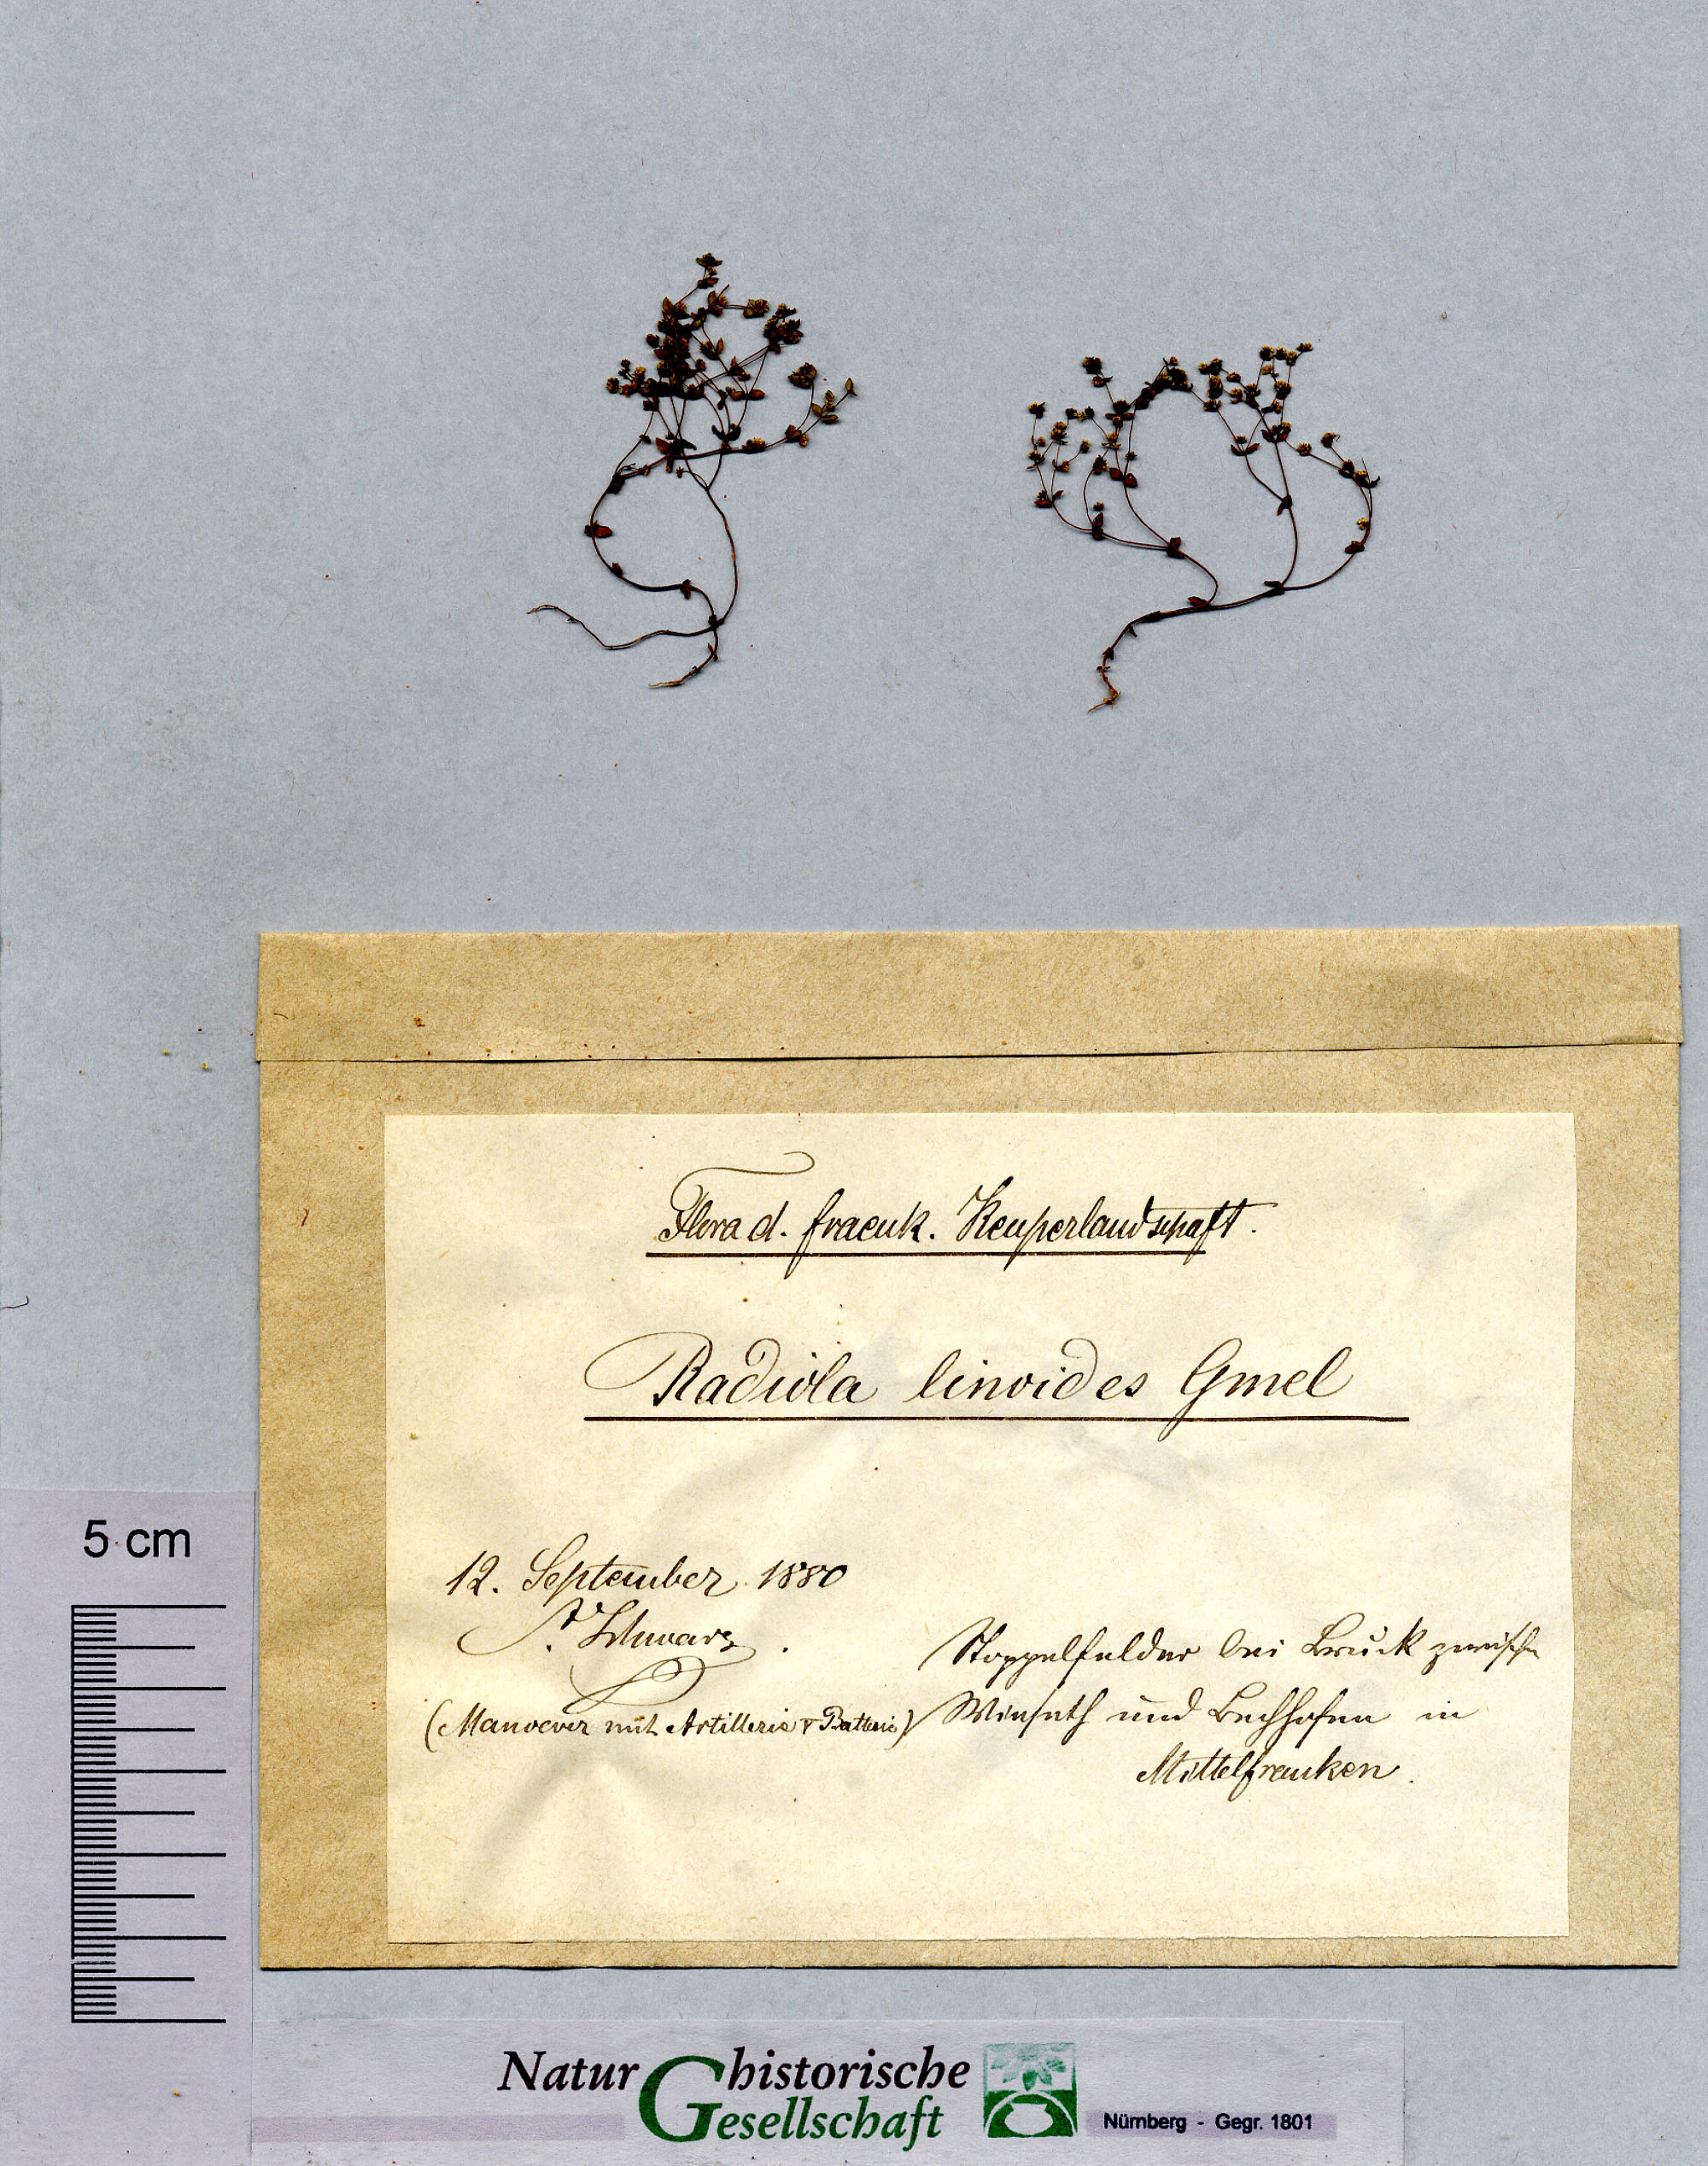 Flora d. fraenk. Keuperlandschaft.
Radiola linoides Gmel
12. September 1880
A. Schwarz.
(Manoever mit Artillerie + Batterie)
Stoppelfelder bei Bruck zwischen
und Bechhofen in
Mittelfranken.
5 cm
Naturhistorische
Gesellschaft
Nürnberg - Gegr. 1801